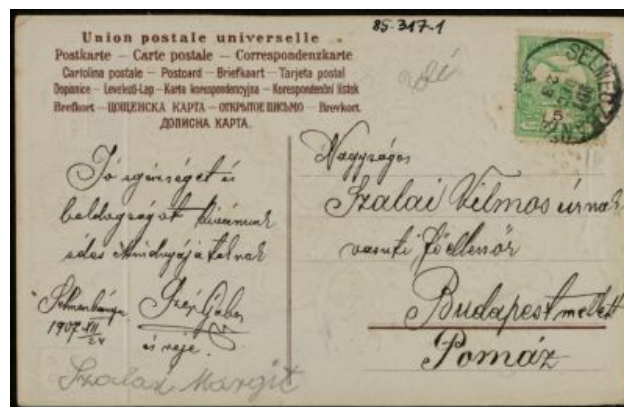 85-317-1
Union postale universelle
Postkarte — Carte postale — Correspondenzkarte
Cartolina postale — Postcard — Briefkaart — Tarjeta postal
Dopisnice — Levelező-Lap — Karta korespondencyjna — Korespondenční lístek
Brefkort — ЦОЩЕНСКА КАРТА — ОТКРЫТОЕ ПИСЬМО — Brevkort
ДОПИСНА КАРТА.
Jó egészséget és
boldogságot kívánunk
édes Mindnyájatoknak
Selmecbánya
1907 XII/24
Szép Gábor
és neje.
Szalax Margit
SELMECZBÁNYA
Nagyságos
Szalai Vilmos úrnak
vasuti főellenőr
Budapest mellett
Pomáz